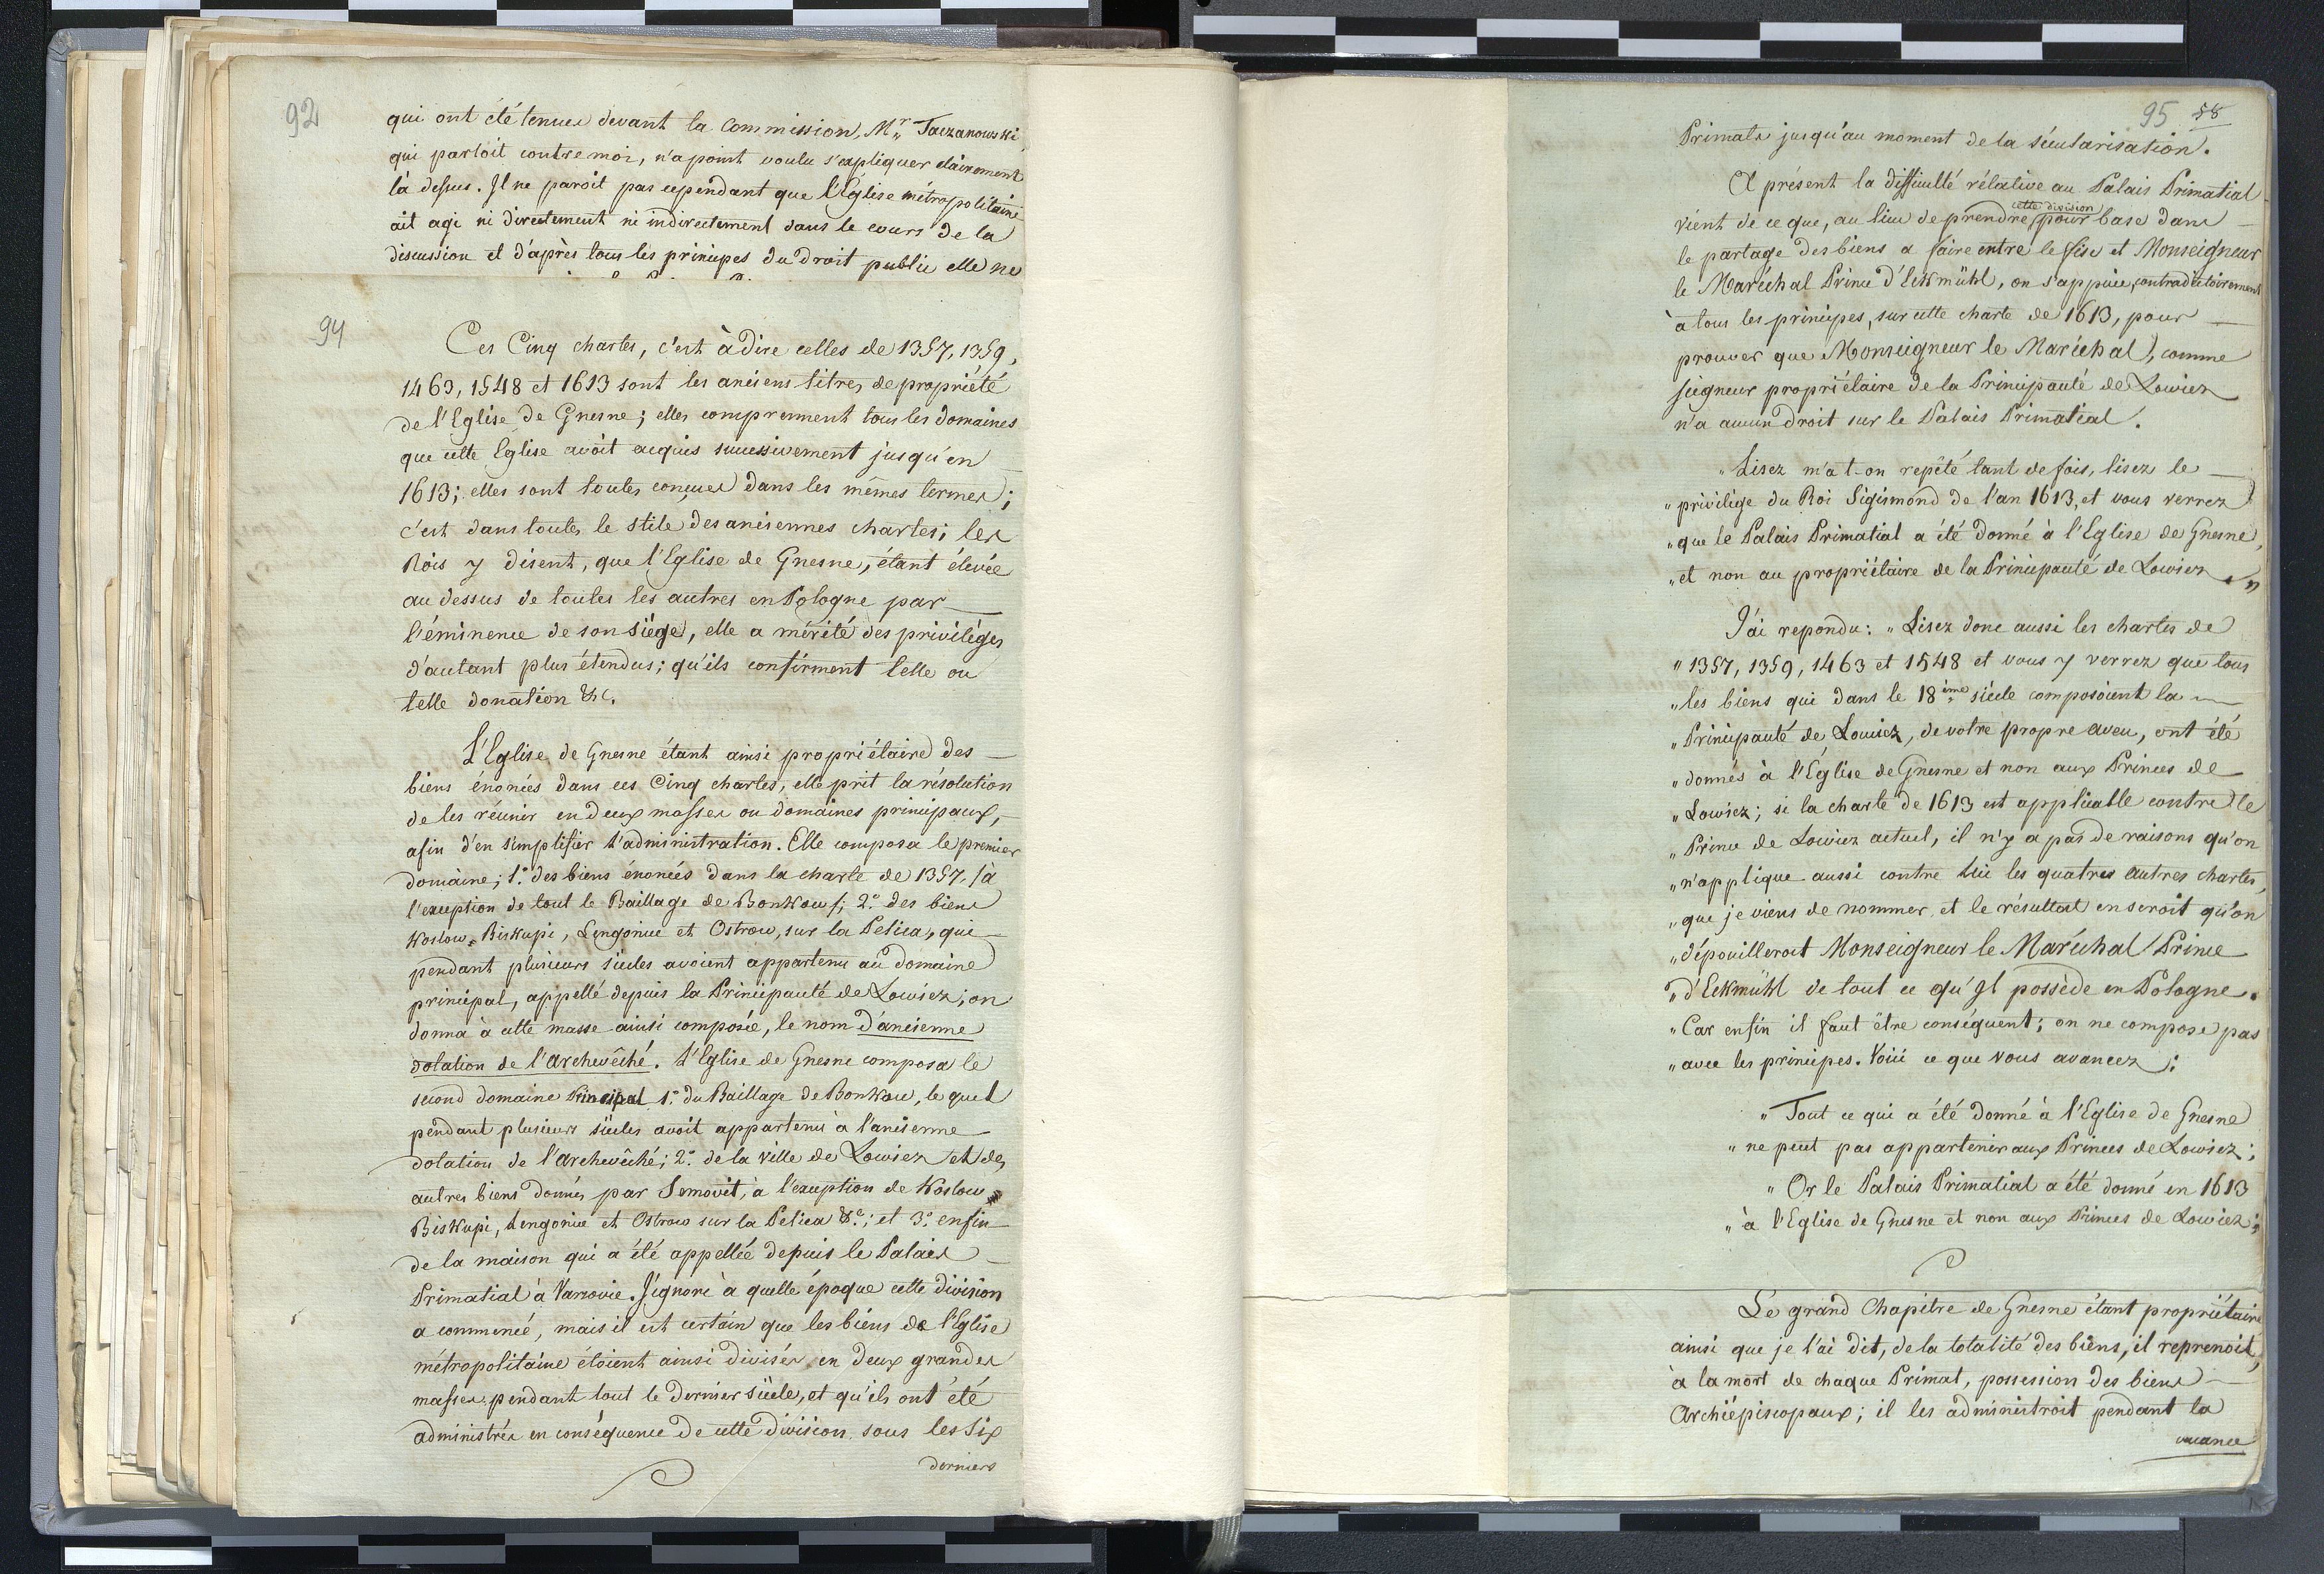 92
qui ont été tenues devant la Commission, Mr. Taczanowski,
qui parloit contre moi, n'a point voulu s'expliquer clairement
là dessus. Il ne paroit pas cependant que l'Église métropolitaine
ait agi ni directement ni indirectement dans le cours de la
discussion et d'après tous les principes du droit public elle ne
94
Ces Cinq chartes, c'est à dire celles de 1357, 1359,
1463, 1548 et 1613 sont les anciens titres de propriété
de l'Eglise de Gnesne; elles comprennent tous les domaines
que cette Eglise avoit acquis successivement jusqu'en
1613; elles sont toutes conçues dans les mêmes termes;
c'est dans toutes le stile des anciennes chartes; les
Rois y disent, que l'Eglise de Gnesne, étant élevée
au dessus de toutes les autres en Pologne par
l'éminence de son siège, elle a mérité des privilèges
d'autant plus étendus; qu'ils confirment telle ou
telle donation &c.
L'Eglise de Gnesne étant ainsi propriétaire des
biens énoncés dans ces Cinq chartes, elle prit la résolution
de les réunir en deux masses ou domaines principaux,
afin d'en simplifier l'administration. Elle composa le premier
domaine; 1.° des biens énoncés dans la charte de 1357, /à
l'exception de tout le Baillage de Bonkow/; 2.° des biens
Koslow-Biskupi, Lengonice et Ostrow, sur la Pelica, qui
pendant plusieurs siècles avoient appartenu au domaine
principal, appellé depuis la Principauté de Lowicz; on
donna à cette masse ainsi composée, le nom d'ancienne
dotation de l'Archevêché. L'Eglise de Gnesne composa le
second domaine Principal 1.° du Baillage de Bonkow, le quel
pendant plusieurs siècles avoit appartenu à l'ancienne
dotation de l'Archevêché; 2.° de la ville de Lowicz et des
autres biens donnés par Semovit, à l'exception de Koslow
Biskupi, Lengonice et Ostrow sur la Pelica &c.; et 3.° enfin
de la maison qui a été appellée depuis le Palais
Primatial à Varsovie. J'ignore à quelle époque cette division
a commencé, mais il est certain que les biens de l'Eglise
métropolitaine étoient ainsi divisés en deux grandes
masses pendant tout le dernier siècle, et qu'ils ont été
administrés en conséquence de cette division sous les six
derniers
95 58
Primats jusqu'au moment de la sécularisation.
A présent la difficulté rélative au Palais Primatial
cette division
vient de ce que, au lieu de prendre pour base dans
le partage des biens a faire entre le fisc et Monseigneur
le Maréchal Prince d'Eckmühl, on s'appuie, contradictoirement
à tous les principes, sur cette charte de 1613, pour
prouver que Monseigneur le Maréchal, comme
seigneur propriétaire de la Principauté de Lowicz
n'a aucun droit sur le Palais Primatial.
„Lisez m'a t-on repété tant de fois, lisez le
„privilège du Roi Sigismond de l'an 1613, et vous verrez
„que le Palais Primatial a été donné à l'Eglise de Gnesne,
„et non au propriétaire de la Principauté de Lowicz."
J'ai repondu: „Lisez donc aussi les chartes de
„1357, 1359, 1463 et 1548 et vous y verrez que tous
„les biens qui dans le 18ème siècle composoient la
„Principauté de Lowicz, de votre propre aveu, ont été
„donnés à l'Église de Gnesne et non aux Princes de
„Lowicz; si la charte de 1613 est applicable contre le
„Prince de Lowicz actuel, il n'y a pas de raisons qu'on
„n'applique aussi contre Lui les quatres autres chartes,
„que je viens de nommer, et le résultat en seroit qu'on
„dépouilleroit Monseigneur le Maréchal Prince
„d'Eckmühl de tout ce qu'Il possède en Pologne.
„Car enfin il faut être conséquent; on ne compose pas
„avec les principes. Voici ce que vous avancez:
„Tout ce qui a été donné à l'Eglise de Gnesne
„ne peut pas appartenir aux Princes de Lowicz;
„Or le Palais Primatial a été donné en 1613
„à l'Eglise de Gnesne et non aux Princes de Lowicz;
Le grand Chapitre de Gnesne étant propriétaire
ainsi que je l'ai dit, de la totalité des biens, il reprenoit,
à la mort de chaque Primat, possession des biens
Archiépiscopaux; il les administroit pendant la
vacance